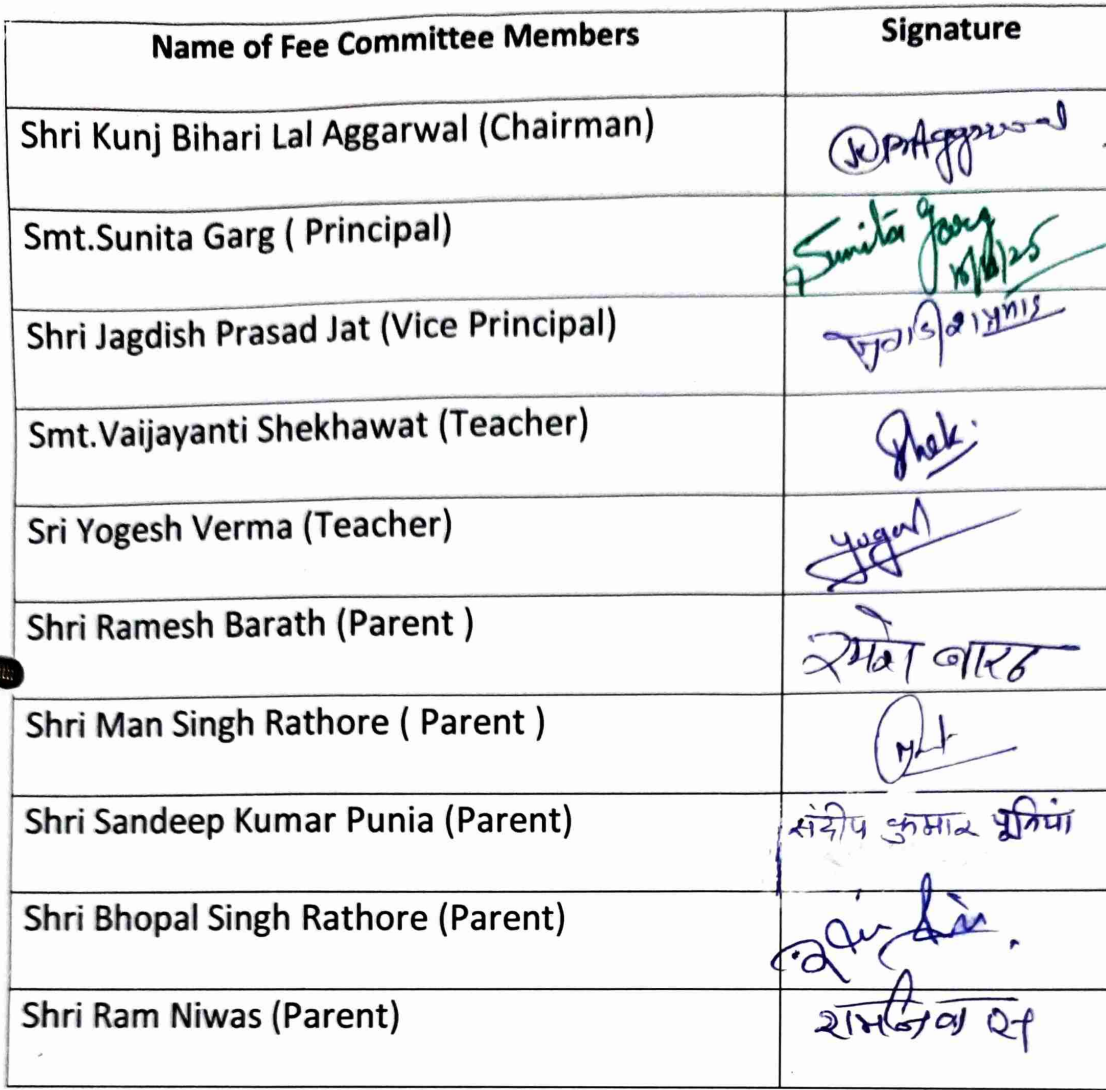 Name of Fee Committee Members Signature
Shri Kunj Bihari Lal Aggarwal (Chairman) KBAggarwal
Smt.Sunita Garg ( Principal) Sunita Garg
Shri Jagdish Prasad Jat (Vice Principal)
Smt.Vaijayanti Shekhawat (Teacher) Shek
Sri Yogesh Verma (Teacher) Yogesh
Shri Ramesh Barath (Parent ) रमेश बारठ
Shri Man Singh Rathore ( Parent )
Shri Sandeep Kumar Punia (Parent) संदीप कुमार पूनियां
Shri Bhopal Singh Rathore (Parent)
Shri Ram Niwas (Parent) रामनिवास